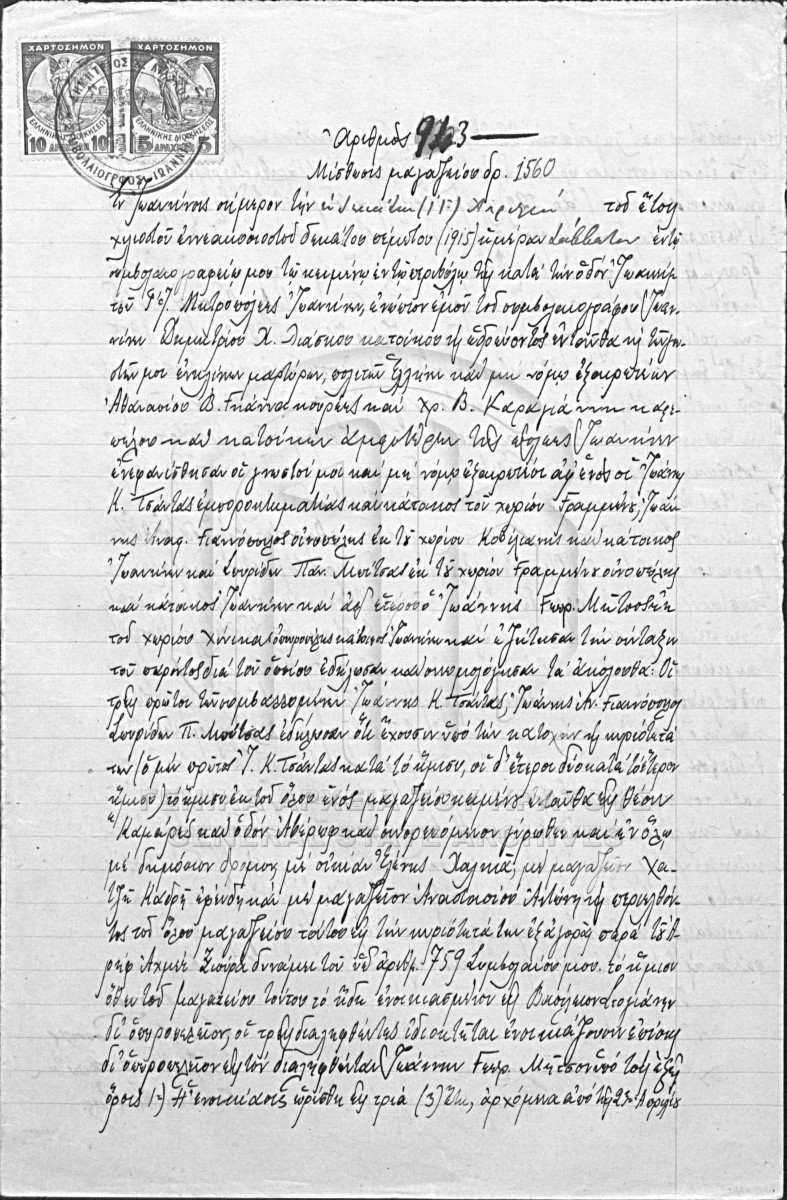 ΧΑΡΤΟΣΗΜΟΝ ΧΑΡΤΟΣΗΜΟΝ
ΕΛΛΗΝΙΚΗΣ ΔΙΟΙΚΗΣΕΩΣ ΕΛΛΗΝΙΚΗΣ ΔΙΟΙΚΗΣΕΩΣ
10 ΔΡΑΧΜΑΙ 10 5 ΔΡΑΧΜΑΙ 5
Ἀριθμὸς 963
Μίσθωσις μαγαζείου δρ. 1560
Ἐν Ἰωαννίνοις σήμερον τὴν ἑνδεκάτην (11ην) Ἀπριλίου τοῦ ἔτους
χιλιοστοῦ ἐννεακοσιοστοῦ δεκάτου πέμπτου (1915) ἡμέραν Σάββατον ἐν τῷ
συμβολαιογραφείῳ μου τῷ κειμένῳ ἐν τῷ περιβόλῳ τῆς κατὰ τὴν ὁδὸν Ἰωαννίν-
των Μητροπόλεως Ἰωαννίνων, ἐνώπιον ἐμοῦ τοῦ συμβολαιογράφου Ἰωαν-
νίνων Δημητρίου Χ. Λιάσκου κατοίκου καὶ ἑδρεύοντος ἐνταῦθα καὶ τῶν γνω-
στῶν μοι ἐνηλίκων μαρτύρων, πολιτῶν Ἑλλήνων καὶ μὴ νόμῳ ἐξαιρετέων
Ἀθανασίου Β. Γιαννακούρεως καὶ Χρ. Β. Καραγιάννη
καὶ κατοίκων ἀμφοτέρων τῆς πόλεως Ἰωαννίνων
ἐνεφανίσθησαν οἱ γνωστοί μοι καὶ μὴ νόμῳ ἐξαιρετέοι ἀφ' ἑνὸς οἱ Ἰωάννης
Κ. Τσάντας ἐμποροκτηματίας καὶ κάτοικος τοῦ χωρίου Γραμμένου, Ἰωάν-
νης Ἀναστ. Γιαννόπουλος οἰνοπώλης ἐκ τοῦ χωρίου Κοβίλιανης καὶ κάτοικος
Ἰωαννίνων καὶ Σπυρίδων Παν. Μπίτσας ἐκ τοῦ χωρίου Γραμμένου οἰνοπώλης
καὶ κάτοικος Ἰωαννίνων καὶ ἀφ' ἑτέρου ὁ Ἰωάννης Γεωρ. Μῆτσος ἐκ
τοῦ χωρίου ὀπωροπώλης κάτοικος Ἰωαννίνων καὶ ἐζήτησαν τὴν σύνταξιν
τοῦ παρόντος διὰ τοῦ ὁποίου ἐδήλωσαν καὶ συνωμολόγησαν τὰ ἀκόλουθα: Οἱ
τρεῖς πρῶτοι τῶν συμβαλλομένων Ἰωάννης Κ. Τσάντας, Ἰωάννης Ἀν. Γιαννόπουλος
Σπυρίδων Π. Μπίτσας ἐδήλωσαν ὅτι ἔχουσιν ὑπὸ τὴν κατοχὴν καὶ κυριότητά
των (ὁ μὲν πρῶτος Ἰ. Κ. Τσάντας κατὰ τὸ ἥμισυ, οἱ δ' ἕτεροι δύο κατὰ τὸ ἕτερον
ἥμισυ) τὸ ἥμισυ ἐκ τοῦ ὅλου ἑνὸς μαγαζείου κειμένου ἐνταῦθα εἰς θέσιν
Καμάρες καὶ ὁδὸν Ἀβέρωφ καὶ συνορευόμενον γύρωθεν καὶ ἐν ὅλῳ
μὲ δημόσιον δρόμον, μὲ οἰκίαν Ἑλένης Χαλκιᾶ, μὲ μαγαζεῖον Χα-
τζῆ Καδρῆ ἐφένδη καὶ μὲ μαγαζεῖον Ἀναστασίου Ἀντώνη καὶ περιελθόν-
τος τοῦ ὅλου μαγαζείου τούτου εἰς τὴν κυριότητά των ἐξ ἀγορᾶς παρὰ τοῦ Ἀ-
ρὴφ Ἀχμὲτ δυνάμει τοῦ ὑπ' ἀριθμ. 759 Συμβολαίου μου. τὸ ἥμισυ
ὅθεν τοῦ μαγαζείου τούτου τὸ ἤδη ἐνοικιασμένον εἰς Βασίλειον Στογιάννην
δι' ὀπωροπωλεῖον, οἱ τρεῖς διαληφθέντες ἰδιοκτῆται ἐνοικιάζουσιν ἐπίσης
δι' ὀπωροπωλεῖον εἰς τὸν διαληφθέντα Ἰωάννην Γεωρ. Μῆτσον ὑπὸ τοὺς ἑξῆς
ὅρους 1ον) Ἡ ἐνοικίασις ὡρίσθη εἰς τρία (3) ἔτη, ἀρχόμενα ἀπὸ τῆς 23ης Ἀπριλίου